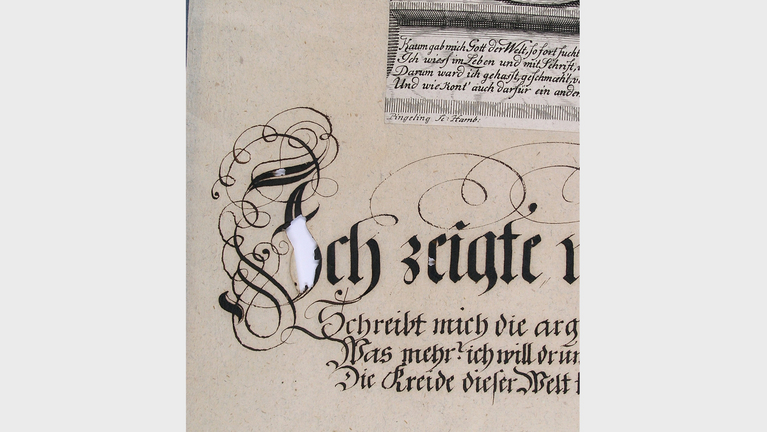 Kaum gab mich Gott der Welt, so fort sucht
Ich wieß im Leben und mit Schrifft,
Darum ward ich gehaßt, geschmæht,
Und wie Kont' auch darfür ein ander
Pingeling Sc: Hamb:
Ich zeigte
Schreibt mich die arg
Was mehr? ich will drum
Die Kreide dieser Welt